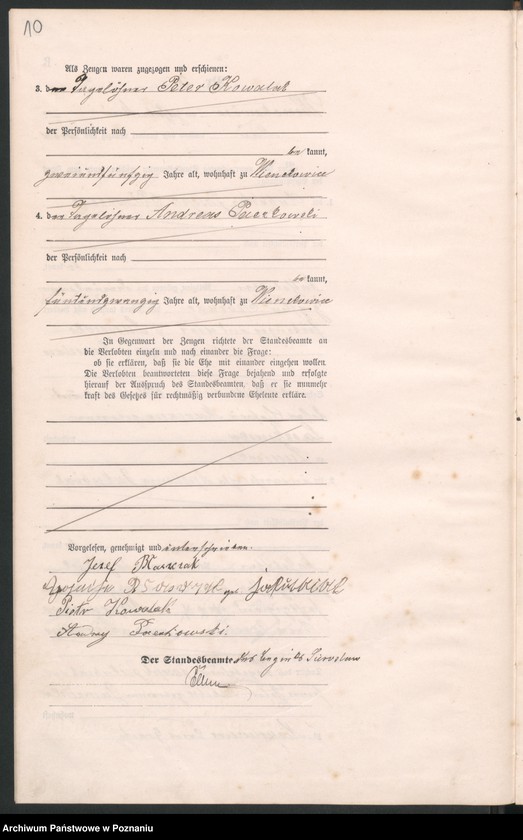 10
Als Zeugen waren zugezogen und erschienen:
3. der Tagelöhner Peter Kowalak
der Persönlichkeit nach
be kannt,
zweiundfünfzig Jahre alt, wohnhaft zu
4. der Tagelöhner Andreas
der Persönlichkeit nach
be kannt,
fünfundzwanzig Jahre alt, wohnhaft zu
In Gegenwart der Zeugen richtete der Standesbeamte an
die Verlobten einzeln und nach einander die Frage:
ob sie erklären, daß sie die Ehe mit einander eingehen wollen.
Die Verlobten beantworteten diese Frage bejahend und erfolgte
hierauf der Ausspruch des Standesbeamten, daß er sie nunmehr
kraft des Gesetzes für rechtmäßig verbundene Eheleute erkläre.
Vorgelesen, genehmigt und unterschrieben.
Jozef
Piotr Kowalak
Der Standesbeamte.
Archiwum Państwowe w Poznaniu